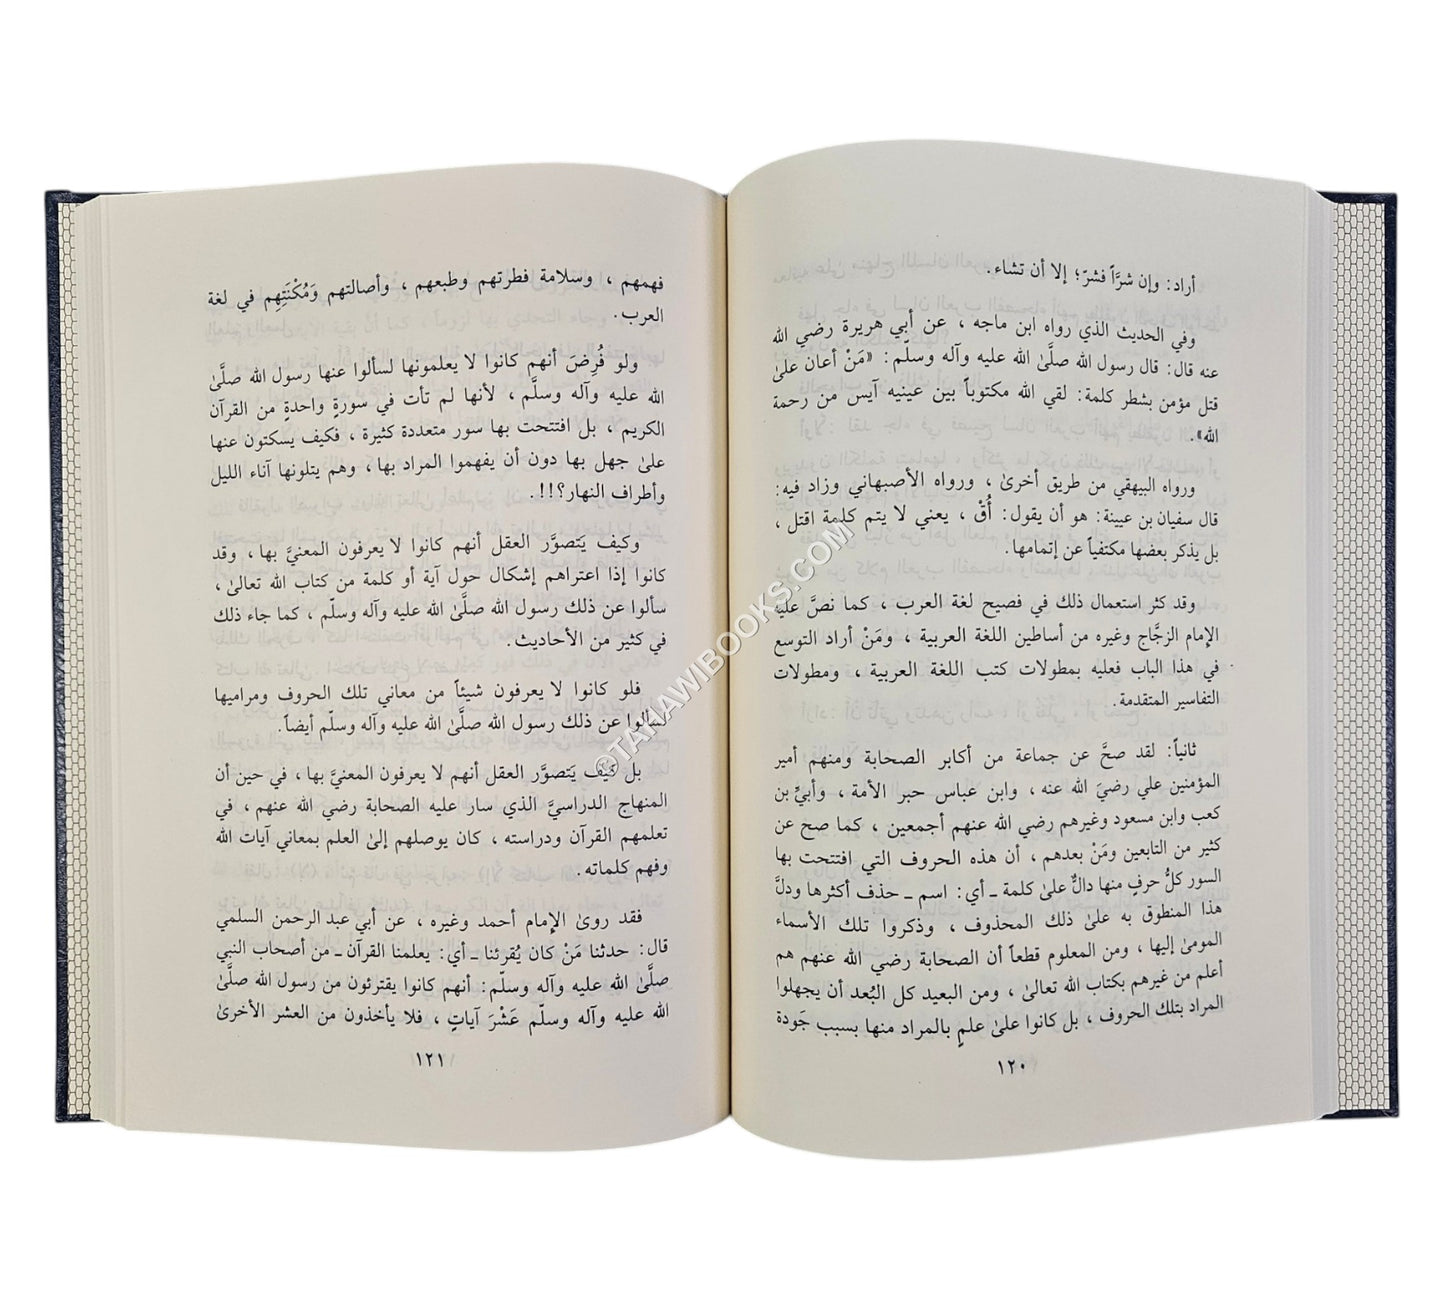 أراد: وإن شرَّاً فشرّ؛ إلا أن تشاء.
وفي الحديث الذي رواه ابن ماجه ، عن أبي هريرة رضي الله
عنه قال: قال رسول الله صلَّىٰ الله عليه وآله وسلّم: «مَنْ أعان علىٰ
قتل مؤمن بشطر كلمة: لقي الله مكتوباً بين عينيه آيس من رحمة
الله».
ورواه البيهقي من طريق أخرىٰ ، ورواه الأصبهاني وزاد فيه:
قال سفيان بن عيينة: هو أن يقول: أُقْ ، يعني لا يتم كلمة اقتل ،
بل يذكر بعضها مكتفياً عن إتمامها.
وقد كثر استعمال ذلك في فصيح لغة العرب ، كما نصَّ عليه
الإمام الزجَّاج وغيره من أساطين اللغة العربية ، ومَنْ أراد التوسع
في هذا الباب فعليه بمطولات كتب اللغة العربية ، ومطولات
التفاسير المتقدمة.
ثانياً: لقد صحَّ عن جماعة من أكابر الصحابة ومنهم أمير
المؤمنين علي رضيَ الله عنه ، وابن عباس حبر الأمة ، وأبيِّ بن
كعب وابن مسعود وغيرهم رضي الله عنهم أجمعين ، كما صح عن
كثير من التابعين ومَنْ بعدهم ، أن هذه الحروف التي افتتحت بها
السور كلُّ حرفٍ منها دالٌّ علىٰ كلمة ـ أي: اسم ـ حذف أكثرها ودلَّ
هذا المنطوق به علىٰ ذلك المحذوف ، وذكروا تلك الأسماء
المومىٰ إليها ، ومن المعلوم قطعاً أن الصحابة رضي الله عنهم هم
أعلم من غيرهم بكتاب الله تعالىٰ ، ومن البعيد كل البُعد أن يجهلوا
المراد بتلك الحروف ، بل كانوا علىٰ علمٍ بالمراد منها بسبب جَودة
١٢٠
فهمهم ، وسلامة فطرتهم وطبعهم ، وأصالتهم وَمُكْنَتَهِم في لغة
العرب.
ولو فُرِضَ أنهم كانوا لا يعلمونها لسألوا عنها رسول الله صلَّىٰ
الله عليه وآله وسلَّم ، لأنها لم تأت في سورةٍ واحدةٍ من القرآن
الكريم ، بل افتتحت بها سور متعددة كثيرة ، فكيف يسكتون عنها
علىٰ جهل بها دون أن يفهموا المراد بها ، وهم يتلونها آناء الليل
وأطراف النهار؟!!.
وكيف يَتصوَّر العقل أنهم كانوا لا يعرفون المعنيَّ بها ، وقد
كانوا إذا اعتراهم إشكال حول آية أو كلمة من كتاب الله تعالىٰ ،
سألوا عن ذلك رسول الله صلَّىٰ الله عليه وآله وسلّم ، كما جاء ذلك
في كثير من الأحاديث.
فلو كانوا لا يعرفون شيئاً من معاني تلك الحروف ومراميها
لسألوا عن ذلك رسول الله صلَّىٰ الله عليه وآله وسلّم أيضاً.
بل كيف يَتصوَّر العقل أنهم لا يعرفون المعنيَّ بها ، في حين أن
المنهاج الدراسيَّ الذي سار عليه الصحابة رضي الله عنهم ، في
تعلمهم القرآن ودراسته ، كان يوصلهم إلىٰ العلم بمعاني آيات الله
وفهم كلماته.
فقد روىٰ الإمام أحمد وغيره ، عن أبي عبد الرحمن السلمي
قال: حدثنا مَنْ كان يُقرئنا ـ أي: يعلمنا القرآن ـ من أصحاب النبي
صلَّىٰ الله عليه وآله وسلّم: أنهم كانوا يقترئون من رسول الله صلَّىٰ
الله عليه وآله وسلّم عَشْرَ آياتٍ ، فلا يأخذون من العشر الأخرىٰ
١٢١
©TAHAWIBOOKS.COM